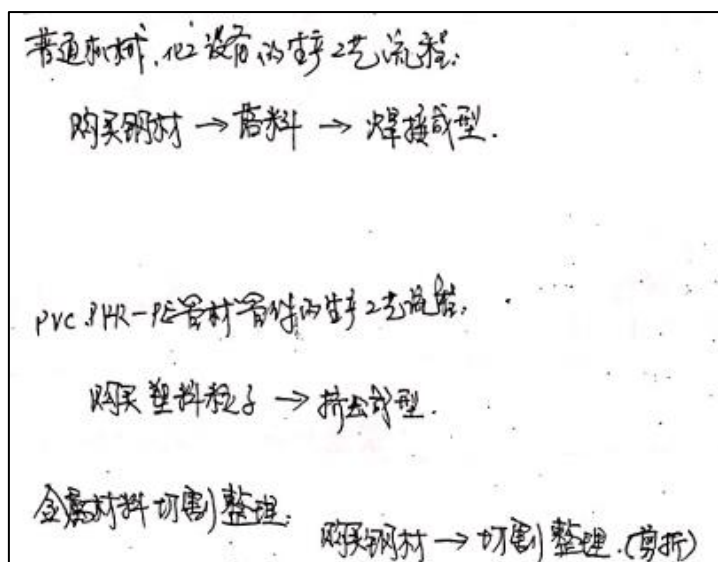 普通机械、化工设备的生产工艺流程:
购买钢材 → 落料 → 焊接成型.
PVC.PPR-PE管材管件的生产工艺流程:
购买塑料粒子 → 挤出成型.
金属材料切割整理:
购买钢材 → 切割整理.(剪折)